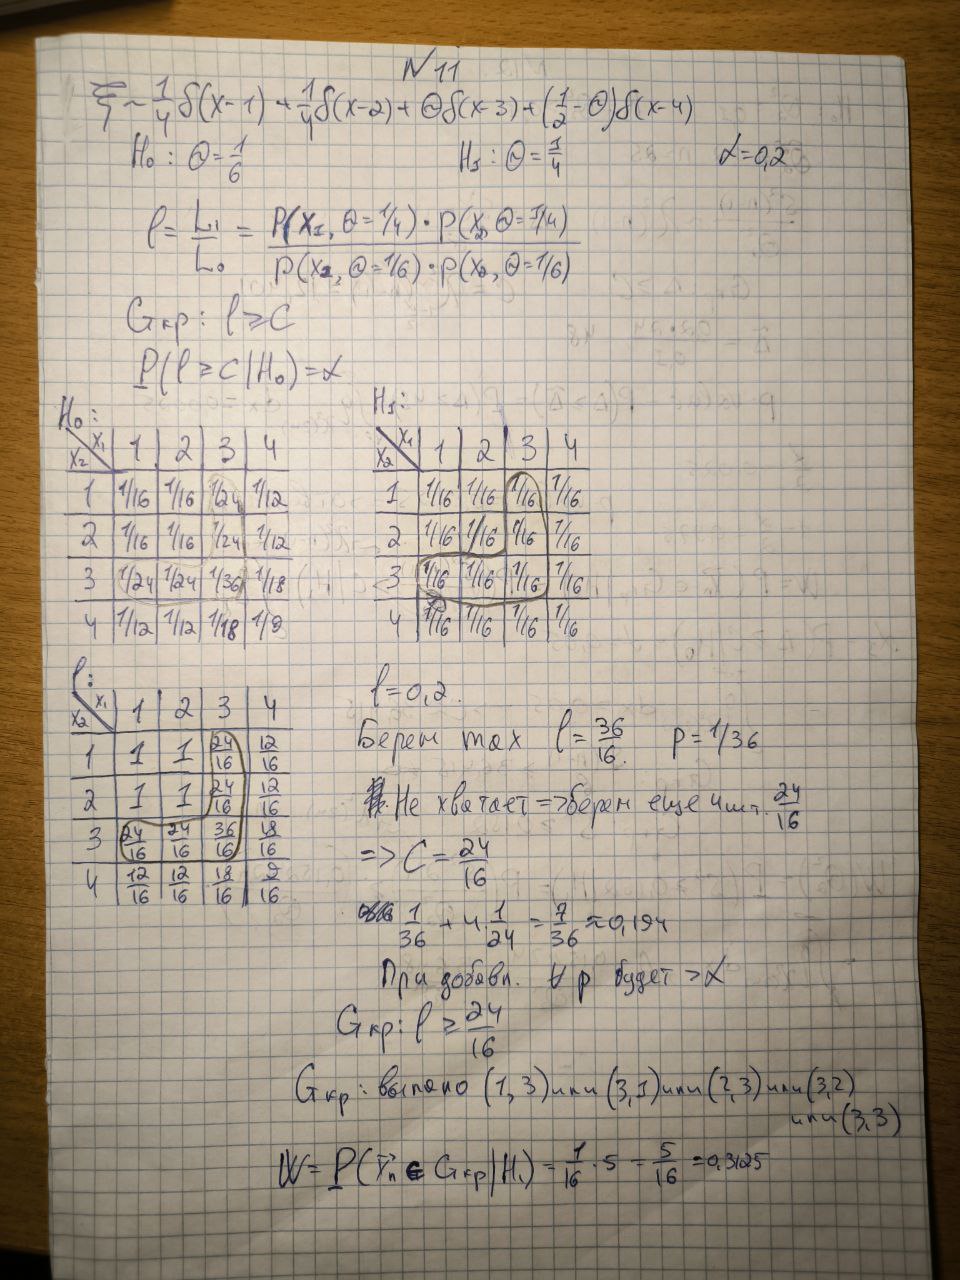 N11
ξ ~ 1/4 δ(x-1) + 1/4 δ(x-2) + Θδ(x-3) + (1/2 - Θ)δ(x-4)
H₀ : Θ = 1/6 H₁ : Θ = 1/4 α = 0,2
l = L₁/L₀ = P(x₁, Θ = 1/4) · P(x₂, Θ = 1/4) / P(x₁, Θ = 1/6) · P(x₂, Θ = 1/6)
Gкр : l ≥ C
P(l ≥ C | H₀) = α
H₀:
x₂ \ x₁ 1 2 3 4
1 1/16 1/16 1/24 1/12
2 1/16 1/16 1/24 1/12
3 1/24 1/24 1/36 1/18
4 1/12 1/12 1/18 1/9
H₁:
x₂ \ x₁ 1 2 3 4
1 1/16 1/16 1/16 1/16
2 1/16 1/16 1/16 1/16
3 1/16 1/16 1/16 1/16
4 1/16 1/16 1/16 1/16
l:
x₂ \ x₁ 1 2 3 4
1 1 1 24/16 12/16
2 1 1 24/16 12/16
3 24/16 24/16 36/16 18/16
4 12/16 12/16 18/16 9/16
l = 0,2.
Берем max l = 36/16. p = 1/36
Не хватает => берем еще 4 шт. 24/16
=> C = 24/16
1/36 + 4·1/24 = 7/36 ≈ 0,194
При добавл. ∀ p будет > α
Gкр : l ≥ 24/16
Gкр : выпало (1, 3) или (3,1) или (2,3) или (3,2)
или (3,3)
W = P(∈ Gкр | H₁) = 1/16 · 5 = 5/16 = 0,3125